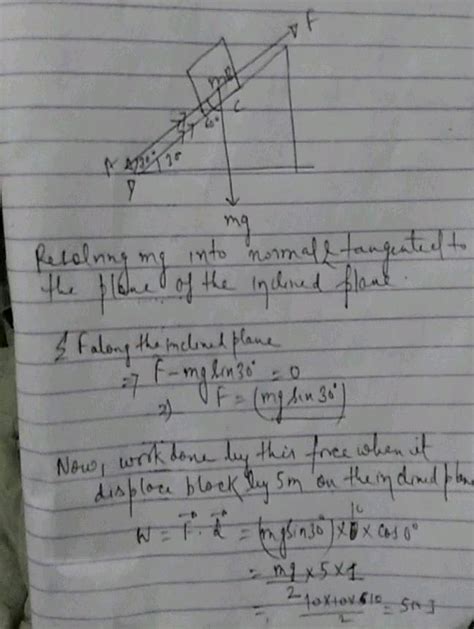 F
m
C
60°
30°
30
mg
Resolving mg into normal & tangential to
the plane of the inclined plane.
F along the inclined plane
⇒ F - mg sin 30° = 0
⇒ F = (mg sin 30°)
Now, work done by this force when it
displace block by 5m on the inclined plane
W = F⃗ . d⃗ = (mg sin 30°) × × cos 0°
= mg/2 × 5 × 1